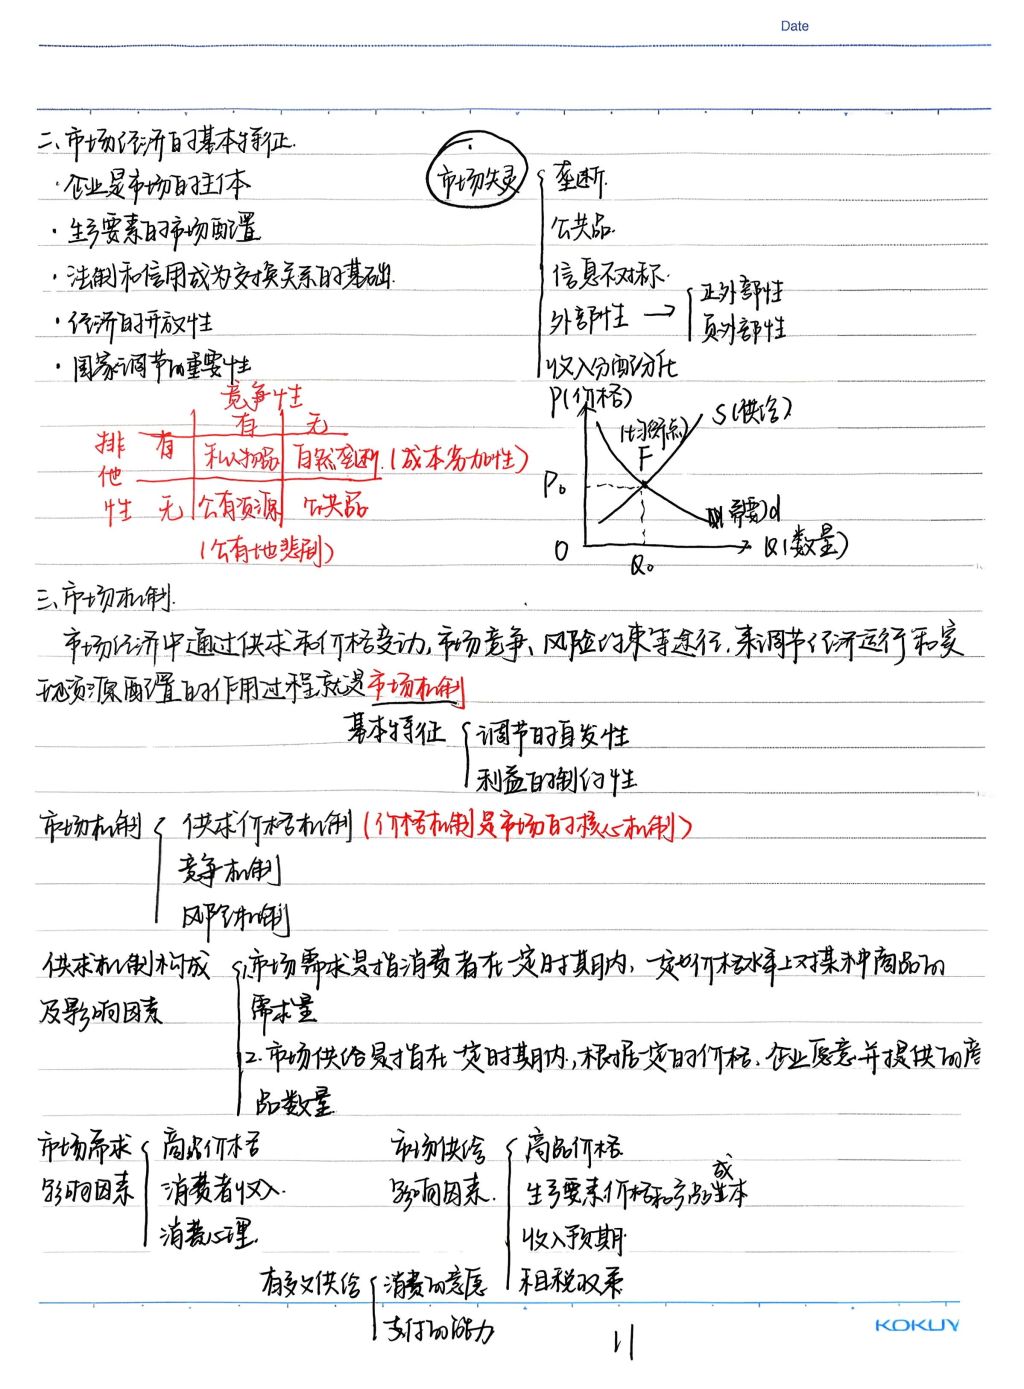 Date
二、市场经济的基本特征.
·企业是市场的主体
·生产要素的市场配置
·法制和信用成为交换关系的基础.
·经济的开放性
·国家调节的重要性
市场失灵
垄断.
公共品.
信息不对称.
外部性 → 正外部性
负外部性
收入分配分化
竞争性
有 无
排他性
有 私人物品 自然垄断.(成本劣加性)
无 公有资源 公共品
(公有地悲剧)
P(价格)
S(供给)
(均衡点)
F
P₀
(需要)d
O
Q₀
Q(数量)
三、市场机制.
市场经济中通过供求和价格变动,市场竞争、风险约束等途径,来调节经济运行和实
现资源配置的作用过程就是市场机制
基本特征
调节的自发性
利益的制约性
市场机制
供求价格机制(价格机制是市场的核心机制)
竞争机制
风险机制
供求机制构成
及影响因素
1.市场需求是指消费者在一定时期内,一定价格水平上对某种商品的
需求量
2.市场供给是指在一定时期内,根据一定的价格、企业愿意并提供的产
品数量.
市场需求
影响因素
商品价格
消费者收入.
消费心理.
市场供给
影响因素.
商品价格.
生产要素价格和产品成本
收入预期.
租税政策
有效供给
消费的意愿
支付的能力
11
KOKUY